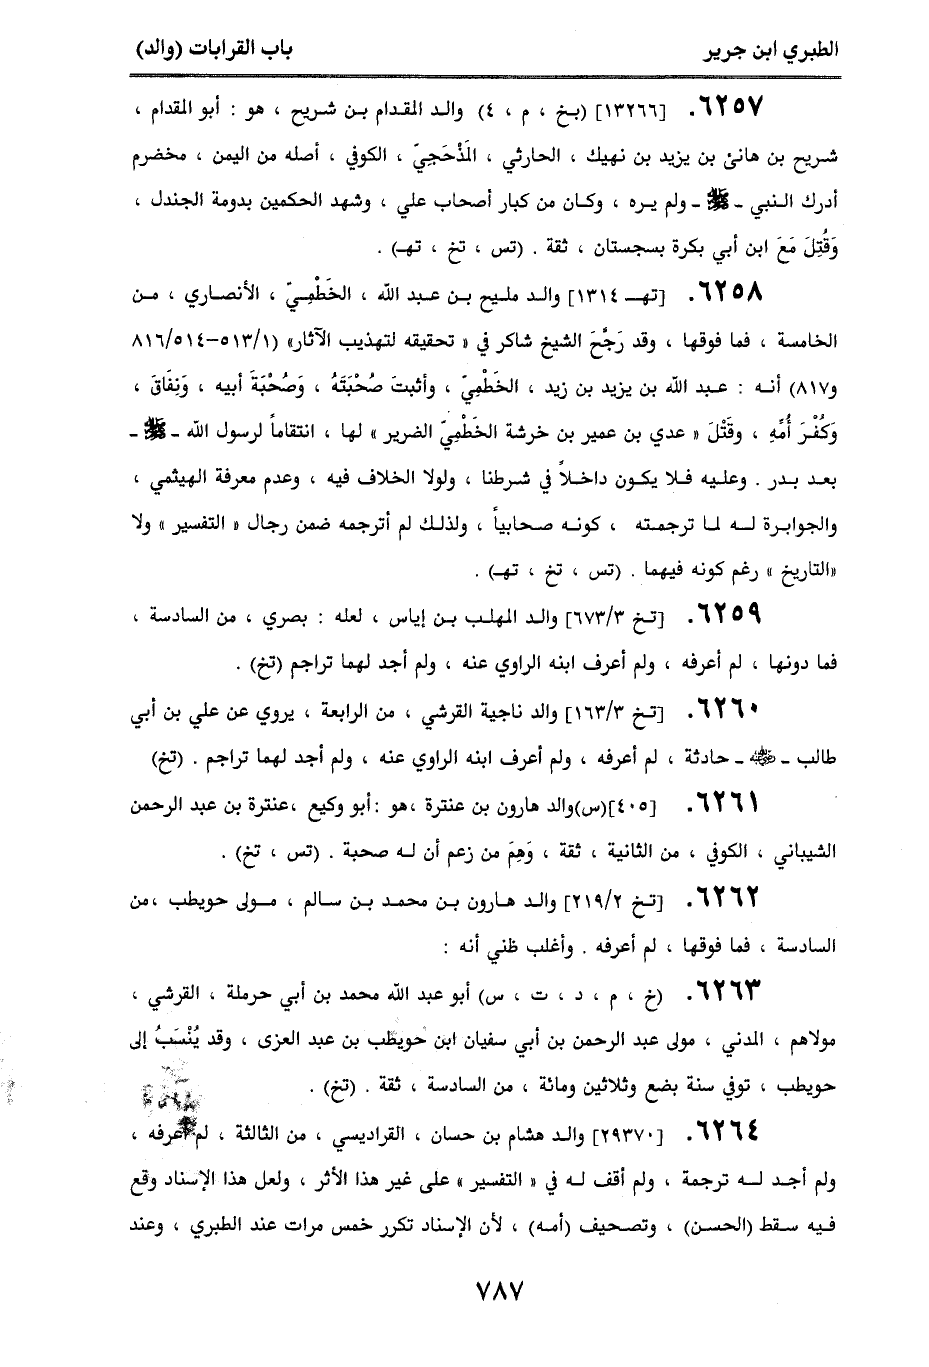 الطبري ابن جرير
باب القرابات (والد)
٦٢٥٧. [١٣٢٦٦] (بخ ، م ، ٤) والد المقدام بن شريح ، هو : أبو المقدام ،
شريح بن هانئ بن يزيد بن نهيك ، الحارثي ، المَذْحَجِيّ ، الكوفي ، أصله من اليمن ، مخضرم
أدرك النبي - ﷺ - ولم يره ، وكان من كبار أصحاب علي ، وشهد الحكمين بدومة الجندل ،
وَقُتِلَ مَعَ ابن أبي بكرة بسجستان ، ثقة . (تس ، تخ ، تهـ) .
٦٢٥٨. [تهـ ١٣١٤] والد مليح بن عبد الله ، الخَطْمِيّ ، الأنصاري ، من
الخامسة ، فما فوقها ، وقد رَجَّحَ الشيخ شاكر في « تحقيقه لتهذيب الآثار» (٥١٣/١–٨١٦/٥١٤
و٨١٧) أنه : عبد الله بن يزيد بن زيد ، الخَطْمِيّ ، وأثبتَ صُحْبَتَهُ ، وَصُحْبَةَ أبيه ، وَنِفَاقَ ،
وَكُفْرَ أُمِّهِ ، وقَتْلَ « عدي بن عمير بن خرشة الخَطْمِيّ الضرير » لها ، انتقاماً لرسول الله - ﷺ -
بعد بدر . وعليه فلا يكون داخلاً في شرطنا ، ولولا الخلاف فيه ، وعدم معرفة الهيثمي ،
والجوابرة له لما ترجمته ، كونه صحابياً ، ولذلك لم أترجمه ضمن رجال « التفسير » ولا
«التاريخ » رغم كونه فيهما . (تس ، تخ ، تهـ) .
٦٢٥٩. [تخ ٦٧٣/٣] والد المهلب بن إياس ، لعله : بصري ، من السادسة ،
فما دونها ، لم أعرفه ، ولم أعرف ابنه الراوي عنه ، ولم أجد لهما تراجم (تخ) .
٦٢٦٠. [تخ ١٦٣/٣] والد ناجية القرشي ، من الرابعة ، يروي عن علي بن أبي
طالب - ﷺ - حادثة ، لم أعرفه ، ولم أعرف ابنه الراوي عنه ، ولم أجد لهما تراجم . (تخ)
٦٢٦١. [٤٠٥](س)والد هارون بن عنترة ،هو :أبو وكيع ،عنترة بن عبد الرحمن
الشيباني ، الكوفي ، من الثانية ، ثقة ، وَهِمَ من زعم أن له صحبة . (تس ، تخ) .
٦٢٦٢. [تخ ٢١٩/٢] والد هارون بن محمد بن سالم ، مولى حويطب ،من
السادسة ، فما فوقها ، لم أعرفه . وأغلب ظني أنه :
٦٢٦٣. (خ ، م ، د ، ت ، س) أبو عبد الله محمد بن أبي حرملة ، القرشي ،
مولاهم ، المدني ، مولى عبد الرحمن بن أبي سفيان ابن حويطب بن عبد العزى ، وقد يُنْسَبُ إلى
حويطب ، توفي سنة بضع وثلاثين ومائة ، من السادسة ، ثقة . (تخ) .
٦٢٦٤. [٢٩٣٧٠] والد هشام بن حسان ، القراديسي ، من الثالثة ، لم أعرفه ،
ولم أجد له ترجمة ، ولم أقف له في « التفسير » على غير هذا الأثر ، ولعل هذا الإسناد وقع
فيه سقط (الحسن) ، وتصحيف (أمه) ، لأن الإسناد تكرر خمس مرات عند الطبري ، وعند
٧٨٧